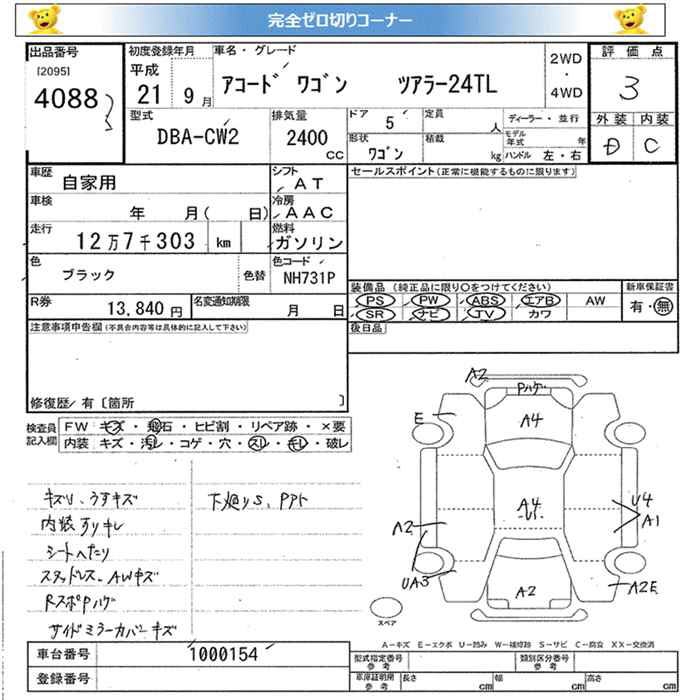 完全ゼロ切りコーナー
出品番号 初度登録年月 車名・グレード 評価点
[2095] 平成 2WD
4088 21 9月 アコード ワゴン ツアラー24TL ・ 3
4WD
型式 排気量 ドア 5 定員 人 ディーラー・並行 外装 内装
DBA-CW2 2400 CC 形状 ワゴン 積載 kg モデル年式 年 D C
ハンドル 左・右
車歴 自家用 シフト AT セールスポイント(正常に機能するものに限ります)
車検 年 月( 日) 冷房 AAC
走行 12万7千303 km 燃料 ガソリン
色 ブラック 色替 色コード NH731P
装備品 (純正品に限り○をつけてください) 新車保証書
PS PW ABS エアB AW 有・無
SR ナビ TV カワ
R券 13,840 円 名変通知期限 月 日
後日品
注意事項申告欄(不具合内容等は具体的に記入して下さい)
修復歴/有〔箇所 〕
検査員記入欄 FW キズ・飛石・ヒビ割・リペア跡・×要
内装 キズ・汚レ・コゲ・穴・スレ・キレ・破レ
キズU、うすキズ 下廻りS、Pアト
内装スリキレ
シートへたり
スタッドレス、AWキズ
RスポPハゲ
サイドミラーカバーキズ
A2
Pハゲ
E A4
A4
U1
U4
A1
A2
UA3
A2
A2E
スペア
A−キズ E−エクボ U−凹み W−補修跡 S−サビ C−腐食 XX−交換済
車台番号 1000154 型式指定番号 参考 類別区分番号 参考
登録番号 車庫証明用 参考 長さ cm 幅 cm 高さ cm